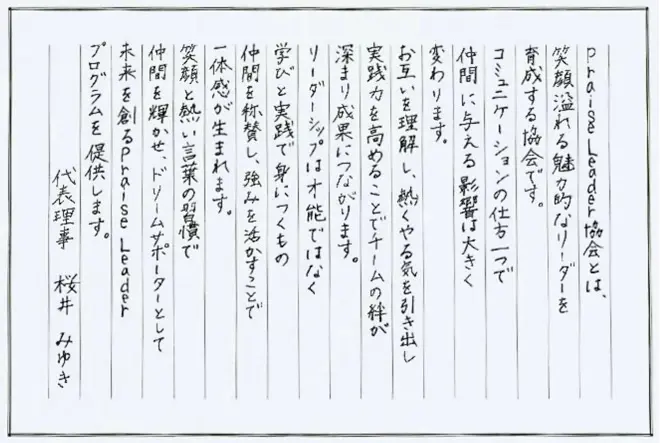 Praise Leader協会とは、
笑顔溢れる魅力的なリーダーを
育成する協会です。
コミュニケーションの仕方一つで
仲間に与える影響は大きく
変わります。
お互いを理解し、熱くやる気を引き出し
実践力を高めることでチームの絆が
深まり成果につながります。
リーダーシップは才能ではなく
学びと実践で身につくもの
仲間を称賛し、強みを活かすことで
一体感が生まれます。
笑顔と熱い言葉の習慣で
仲間を輝かせ、ドリームサポーターとして
未来を創るPraise Leader
プログラムを提供します。
代表理事 桜井 みゆき